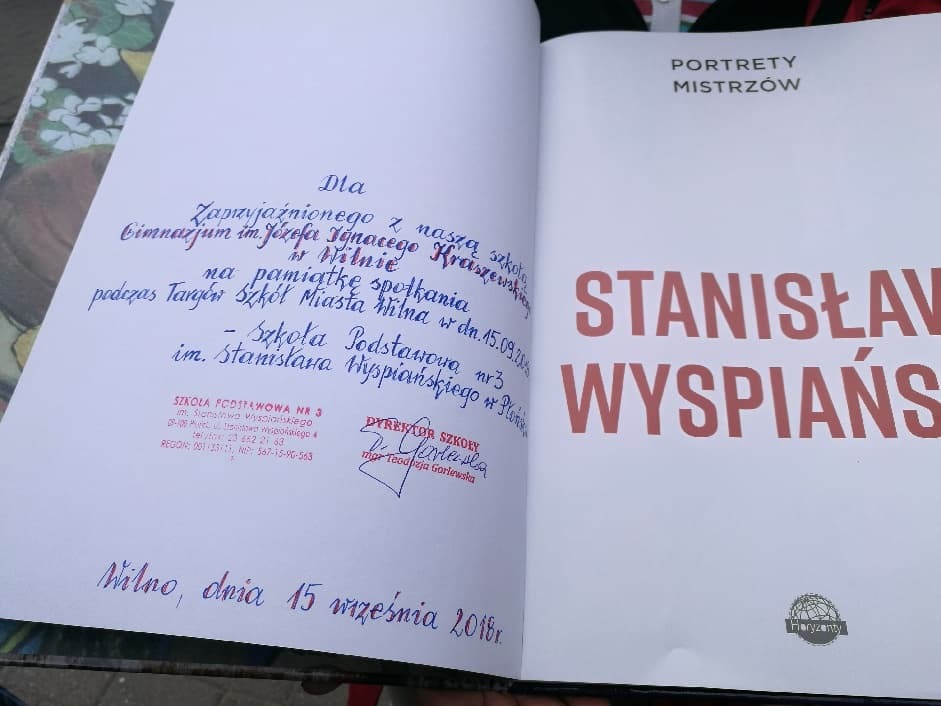 Dla
Zaprzyjaźnionego z naszą szkołą
Gimnazjum im. Józefa Ignacego Kraszewskiego
w Wilnie
na pamiątkę spotkania
podczas Targów Szkół Miasta Wilna w dn. 15.09.2018
- Szkoła Podstawowa nr 3
im. Stanisława Wyspiańskiego w Płońsku
SZKOŁA PODSTAWOWA NR 3
im. Stanisława Wyspiańskiego
09-100 Płońsk, ul. Stanisława Wyspiańskiego 4
tel./fax: 23 662 21 63
NIP: 567-15-90-563
DYREKTOR SZKOŁY
mgr Teodozja Gorlewska
Wilno, dnia 15 września 2018r.
PORTRETY
MISTRZÓW
STANISŁAW
WYSPIAŃS
Horyzonty